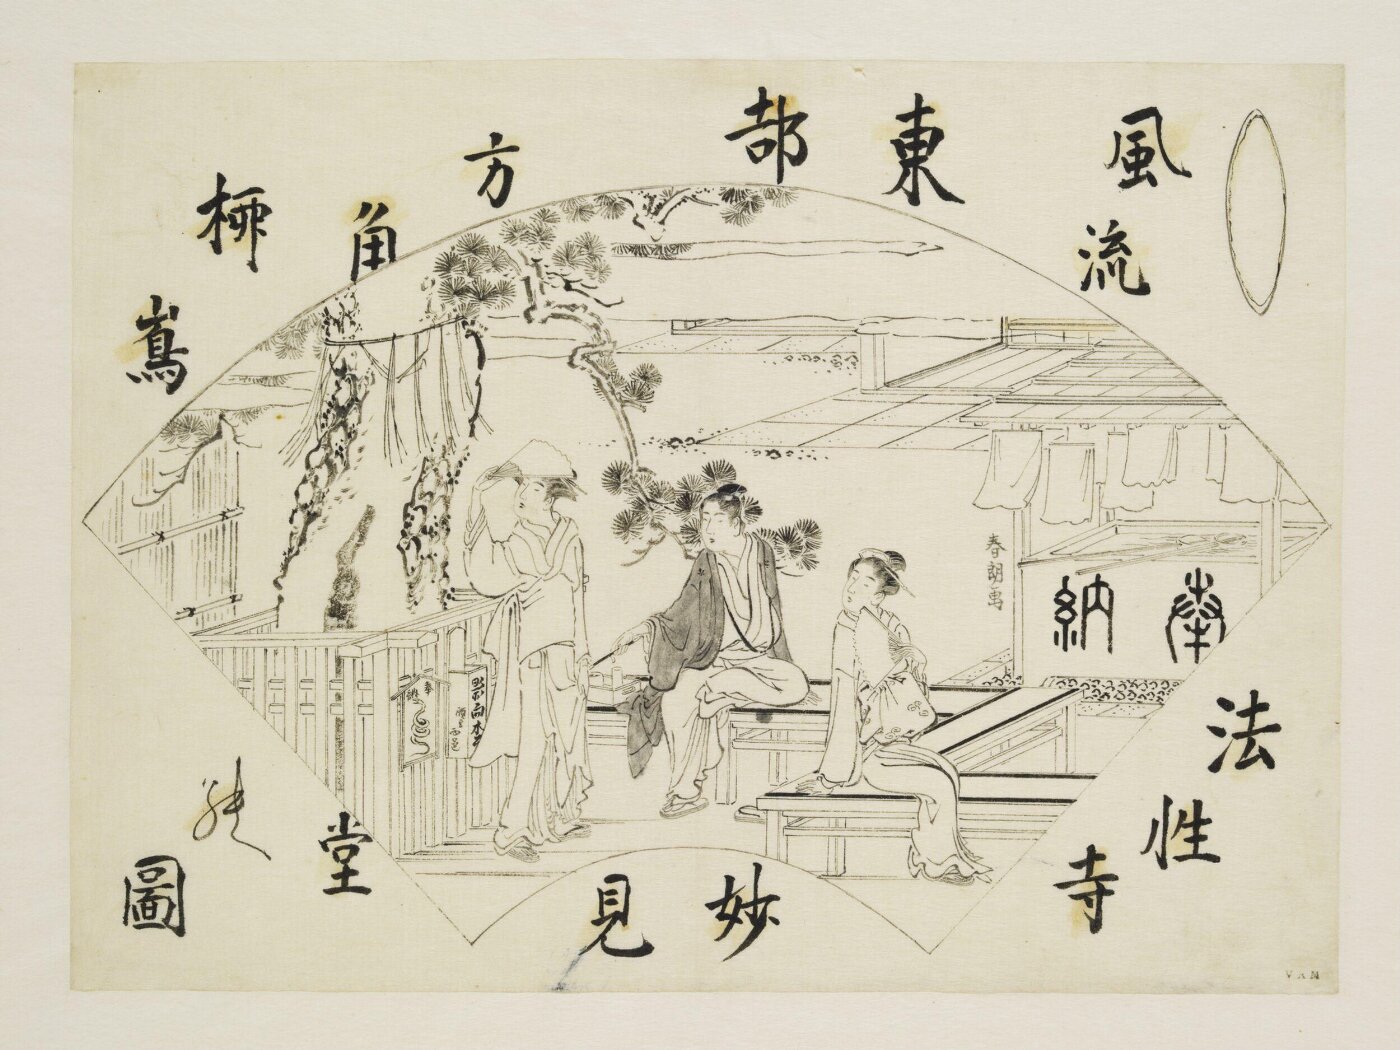 風流
東都
方角
柳嶌
奉納
法性寺
妙見
堂
圖
春朗画
VAM